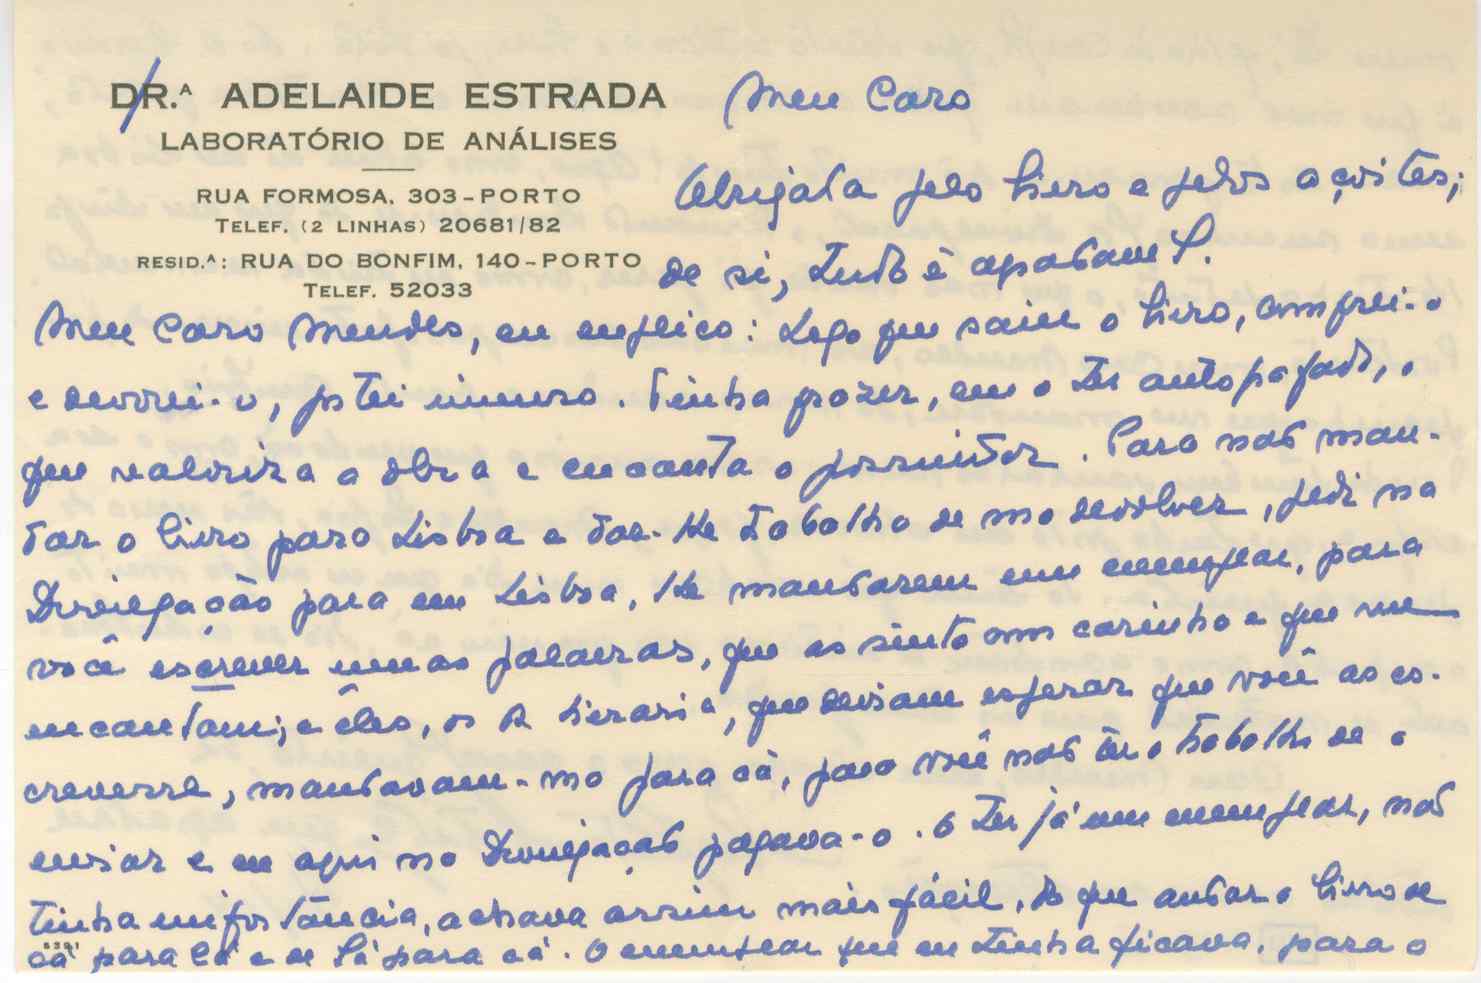 DR.ᴬ ADELAIDE ESTRADA
LABORATÓRIO DE ANÁLISES
RUA FORMOSA, 303 - PORTO
TELEF. (2 LINHAS) 20681/82
RESID.ᴬ: RUA DO BONFIM, 140 - PORTO
TELEF. 52033
Meu Caro
Obrigada pelo livro e pelos açoites;
de si, tudo é agradavel.
Meu Caro Mendes, eu explico: Logo que saiu o livro, comprei-o
e devorei-o, gostei imenso. Tinha prazer, em o ter autografado, o
que valoriza a obra e encanta o possuidor. Para não man-
dar o livro para Lisboa e dar-lhe trabalho de mo devolver, pedi na
Divulgação para em Lisboa, lhe mandarem um exemplar, para
você escrever umas palavras, que as sinto com carinho e que me
encantam; e eles, os da livraria, que deviam esperar que você as es-
crevesse, mandavam-mo para cá, para você não ter o trabalho de o
enviar e eu aqui na Divulgação pagava-o. O ter já um exemplar, não
tinha importância, achava assim mais fácil, do que andar o livro de
cá para lá e de lá para cá. O exemplar que eu tinha ficava para o